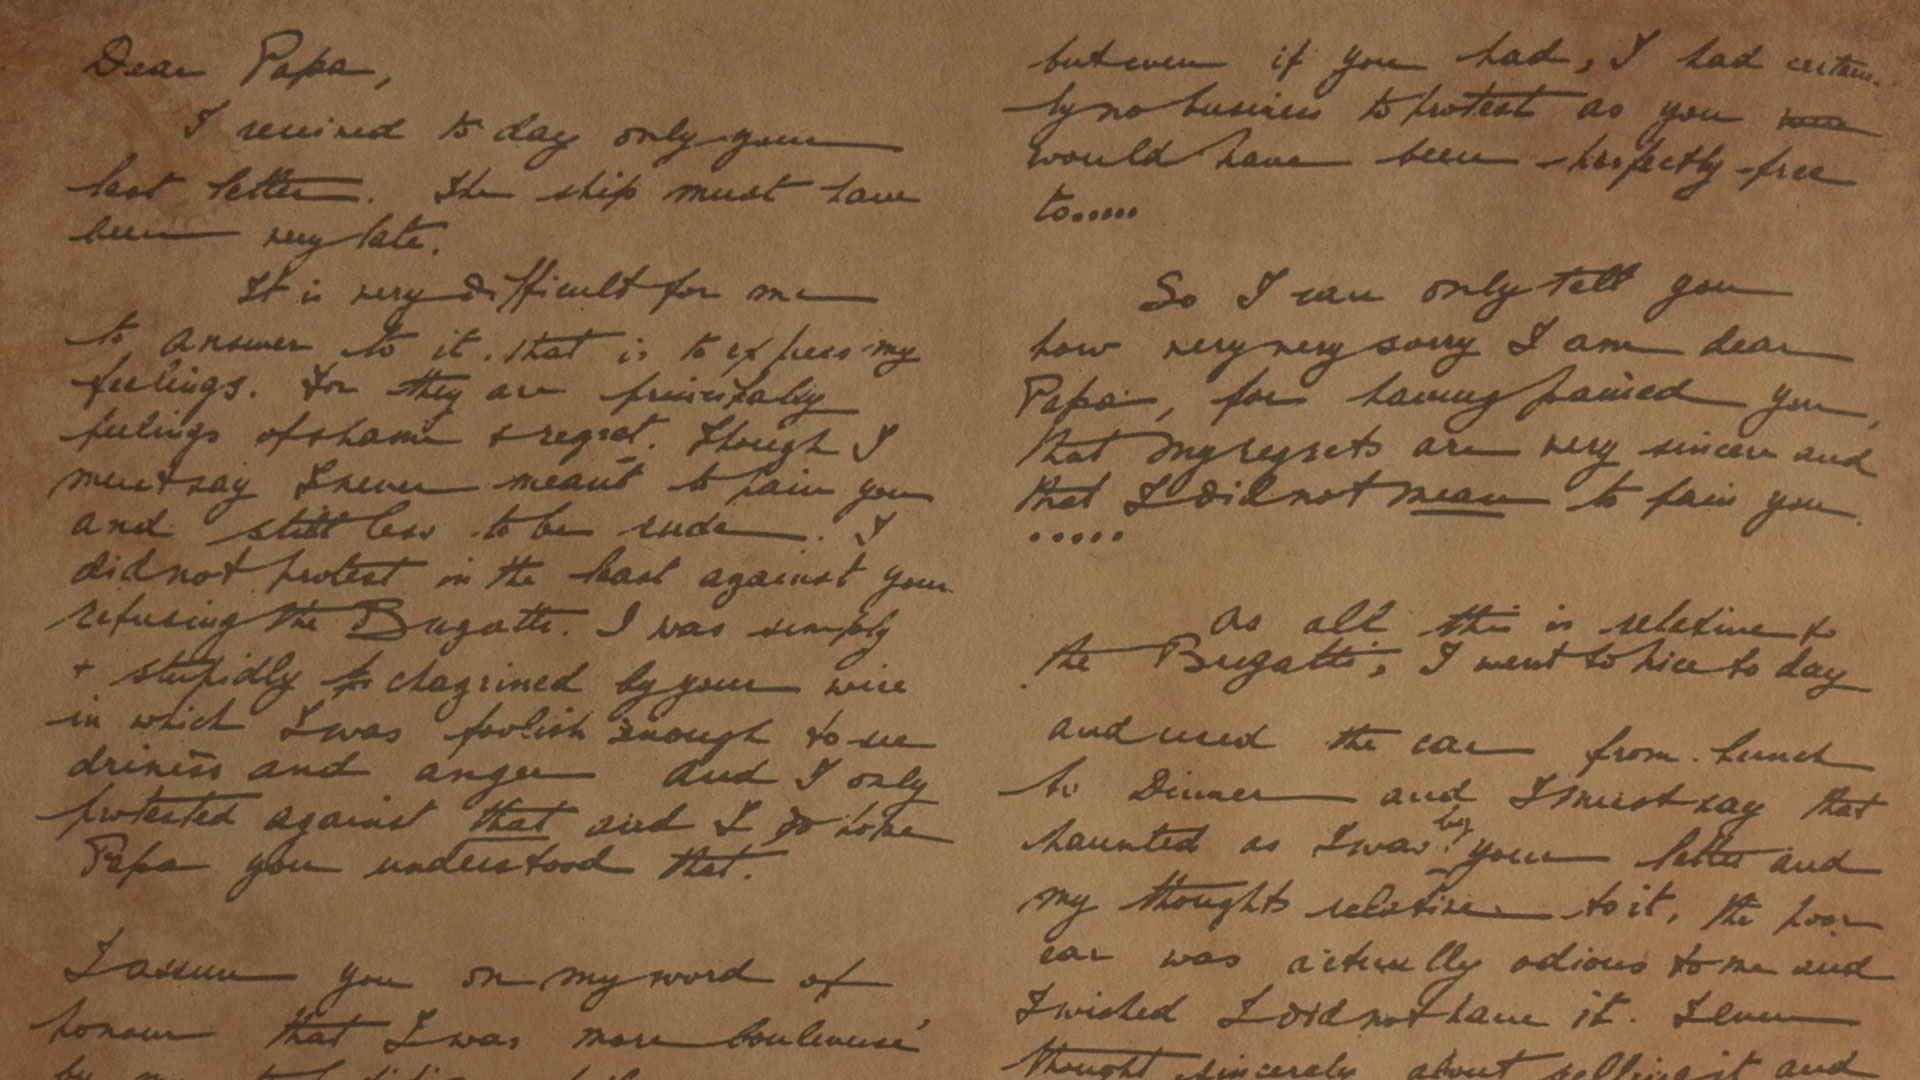 Dear Papa,
I received to day only your
last letter. The ship must have
been very late.
It is very difficult for me
to answer to it. that is to express my
feelings. For they are principally
feelings of shame & regret. Though I
must say I never meant to pain you
and still less to be rude. I
did not protest in the least against your
refusing the Bugatti. I was simply
+ stupidly chagrined by your wire
in which I was foolish enough to see
driness and anger and I only
protested against that and I do hope
Papa you understood that.
I assure you on my word of
honour that I was more bouleversé
by my
but even if you had, I had certain-
ly no business to protest as you
would have been perfectly free
to.....
So I can only tell you
how very very sorry I am dear
Papa, for having pained you,
that my regrets are very sincere and
that I did not mean to pain you.
.....
As all this is relative to
the Bugatti, I went to Nice to day
and used the car from lunch
to Dinner and I must say that
haunted as I was by your letter and
my thoughts relative to it, the poor
car was actually odious to me and
I wished I did not have it. I even
thought sincerely about selling it and